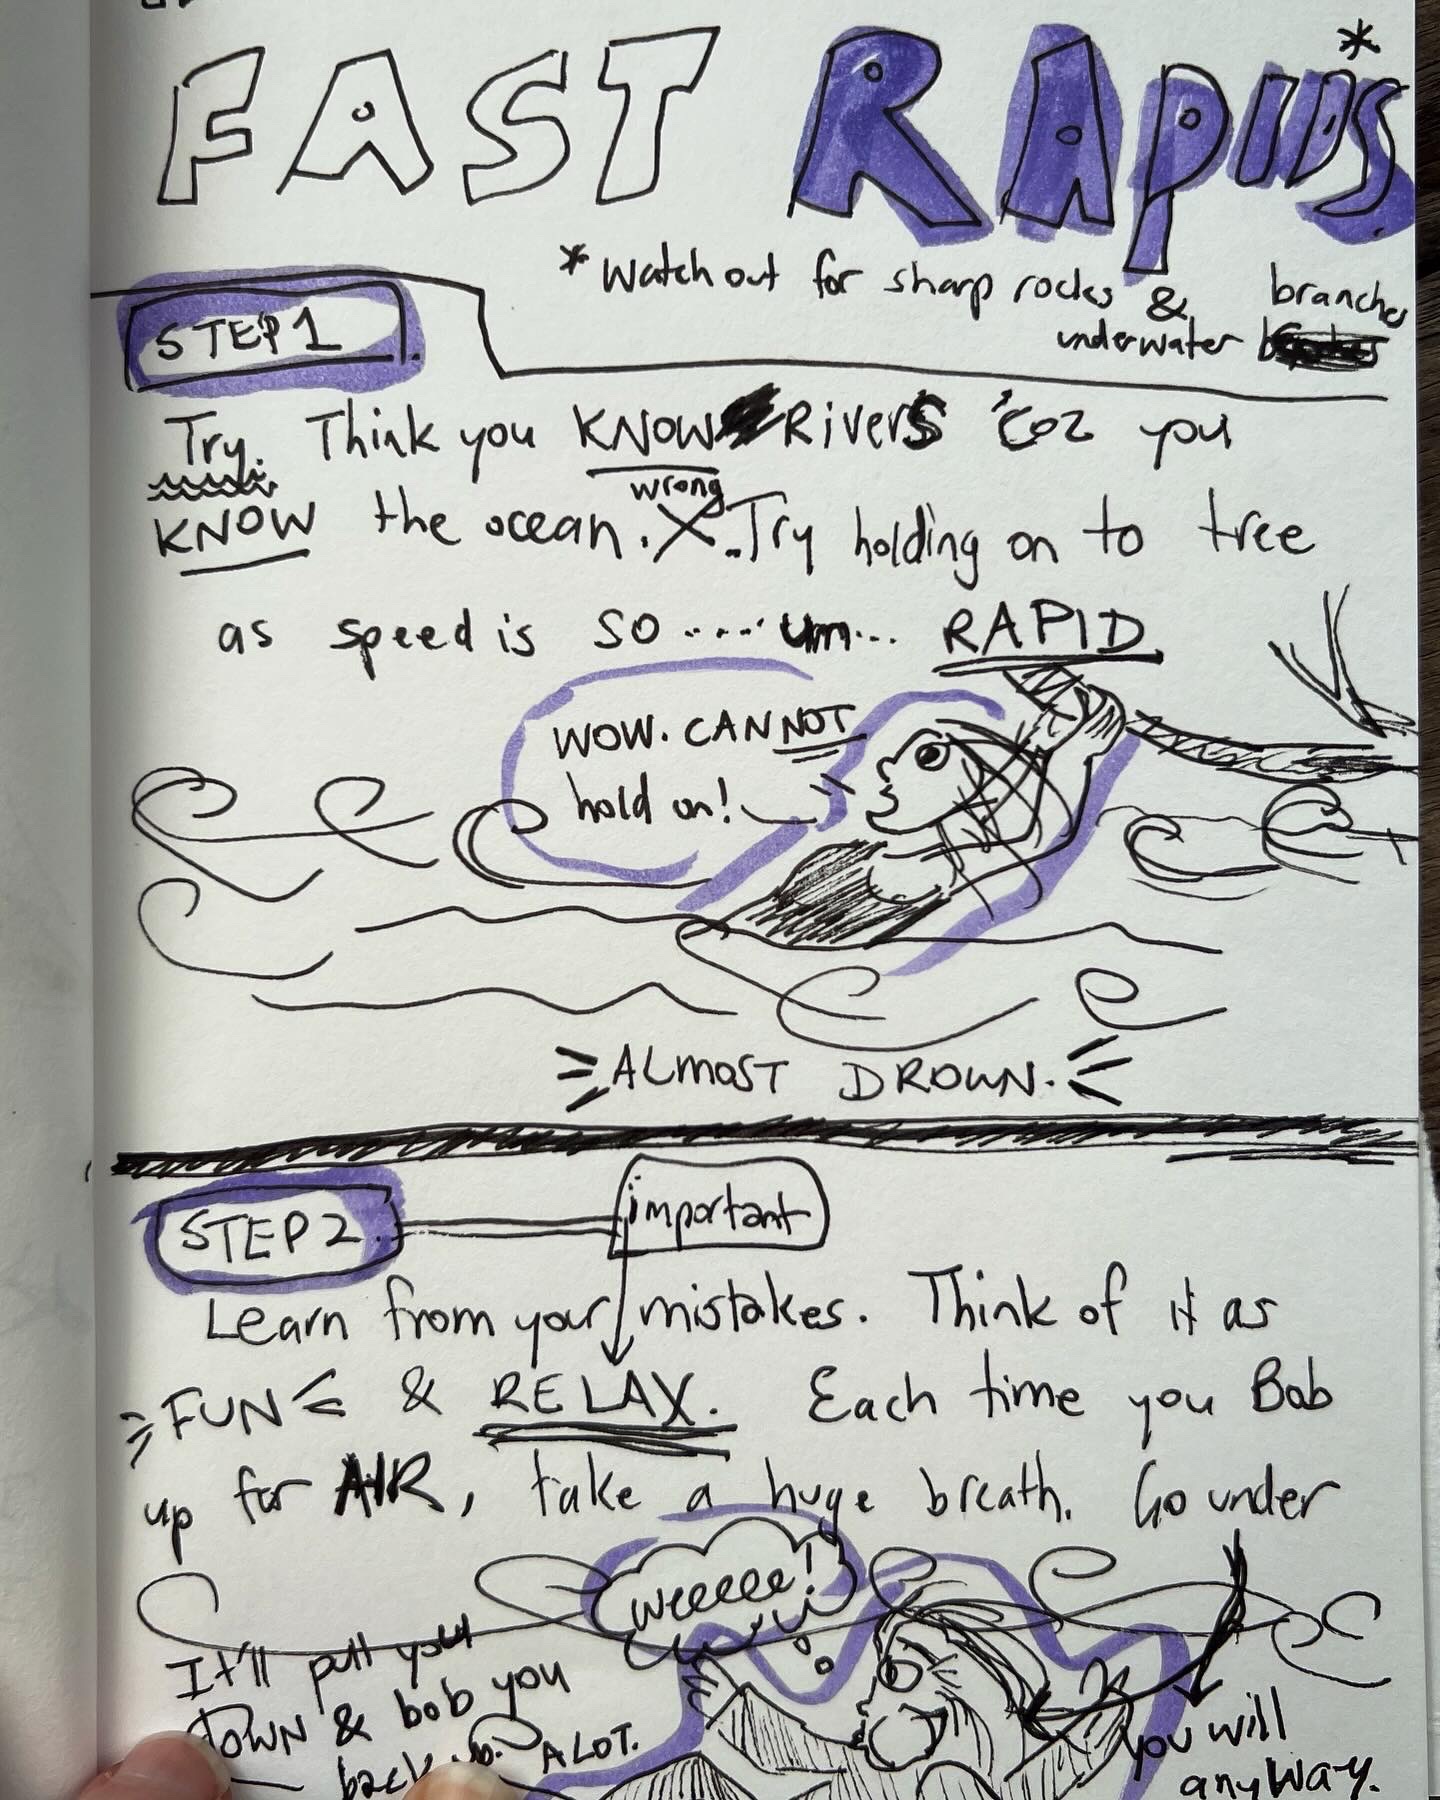 FAST RAPIDS*
* Watch out for sharp rocks &
underwater branches
STEP 1.
Try. Think you KNOW RiverS 'coz you
KNOW the ocean. X wrong. Try holding on to tree
as speed is SO ..... um... RAPID
WOW. CANNOT
hold on!
ALMOST DROWN.
STEP 2.
important
Learn from your mistakes. Think of it as
FUN & RELAX. Each time you Bob
up for AIR, take a huge breath. Go under
weeeee!
It'll pull you
DOWN & bob you
back up. A LOT.
you will
anyway.